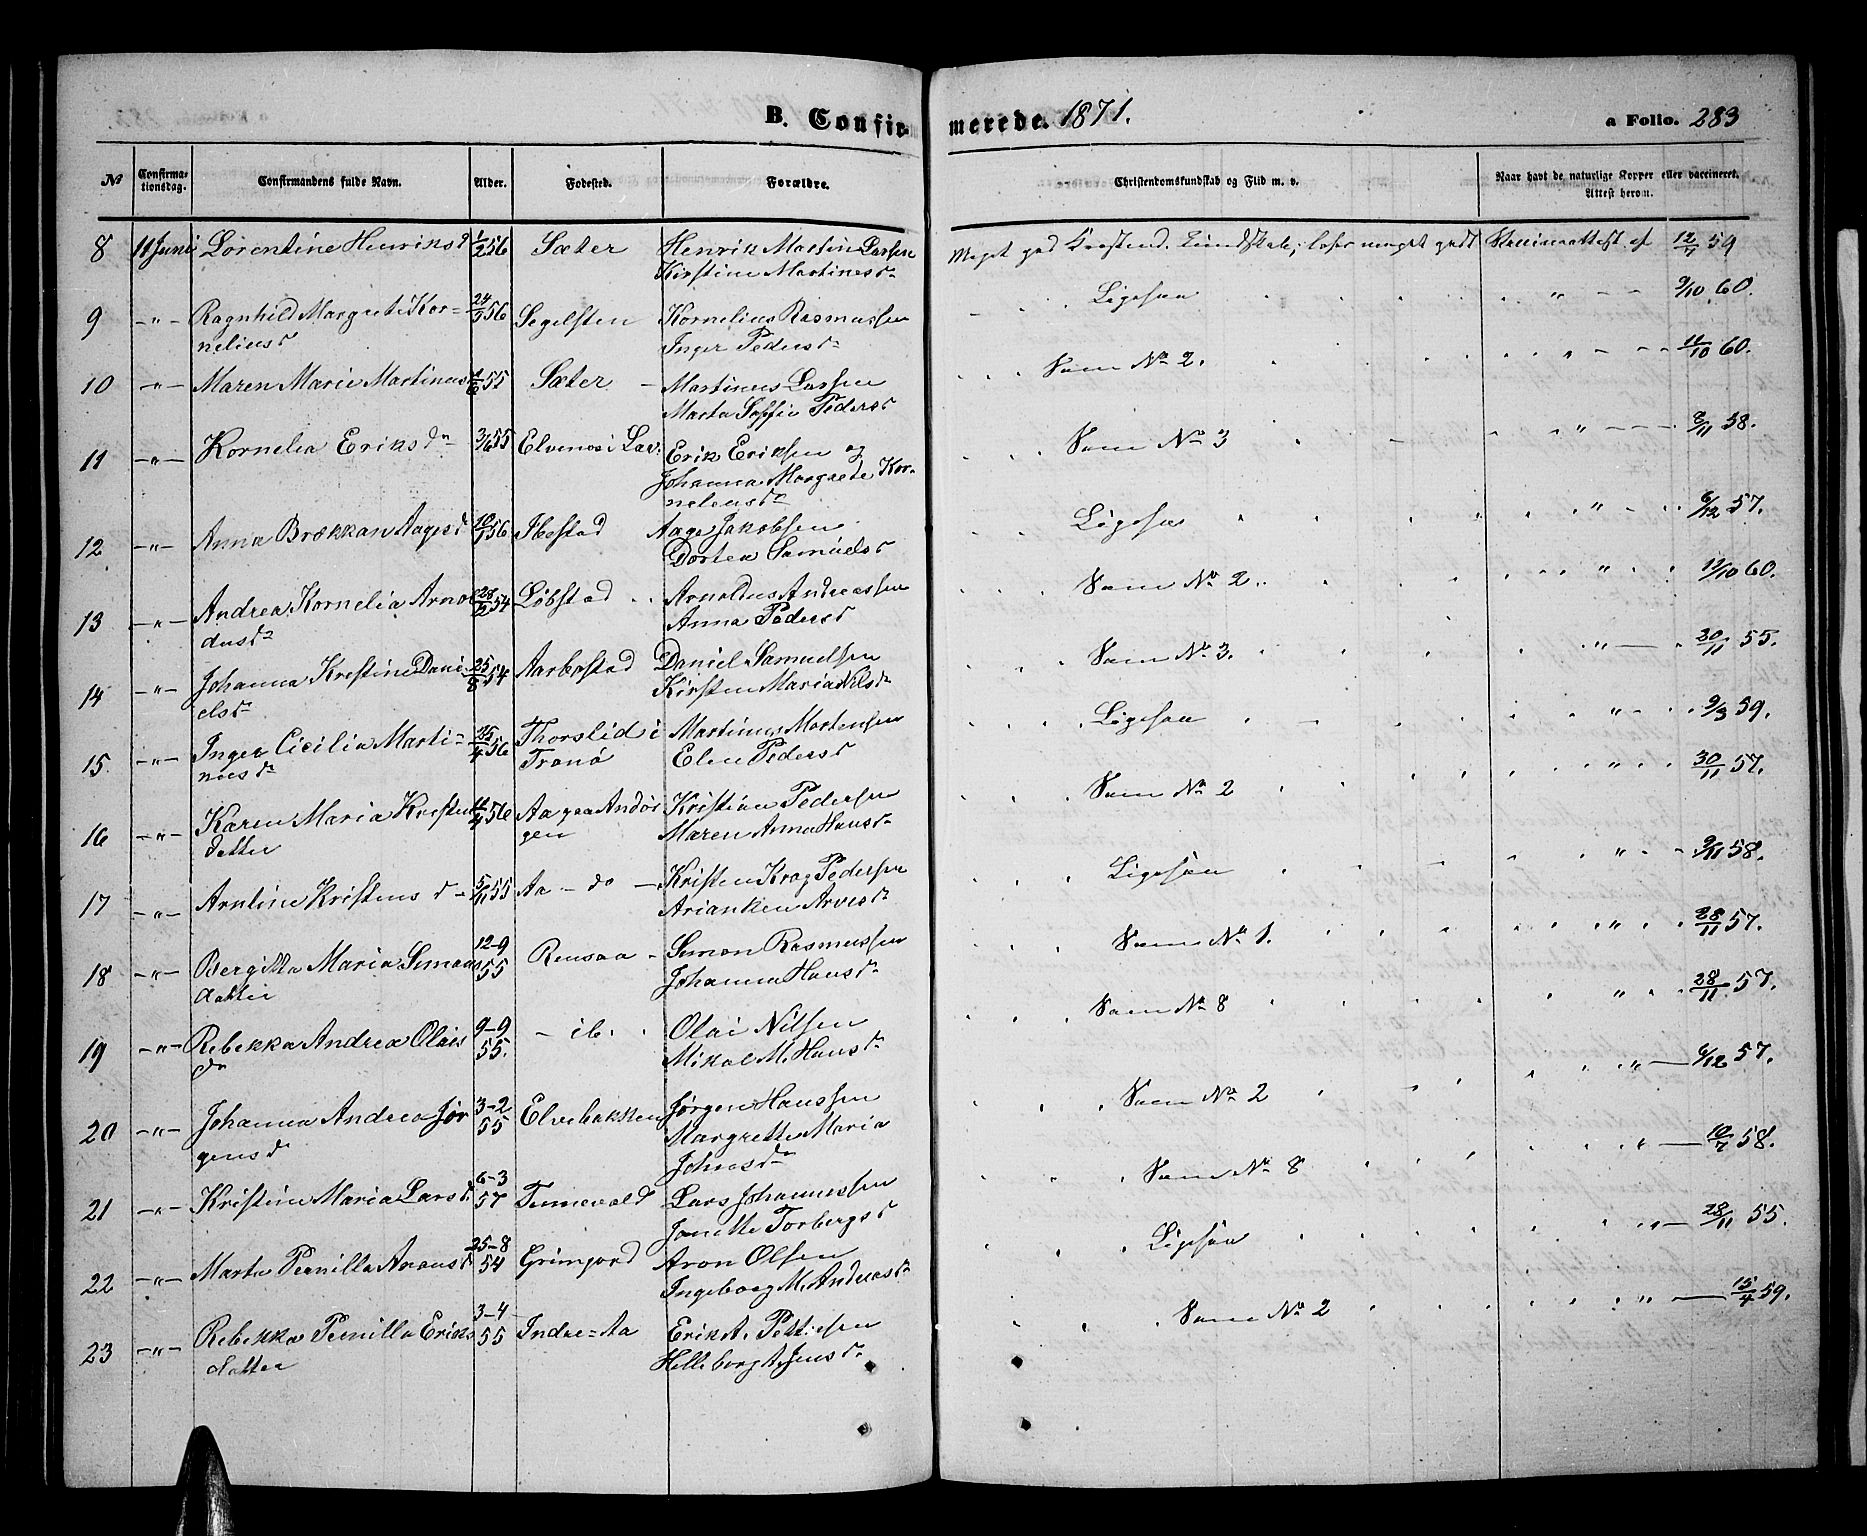 B. Confirmerede. 1871. a Folio. 283
No Confirmationsdag. Confirmandens fulde Navn. Alder. Fødested. Forældre. Christendomskundskab og Flid m. v. Naar havt de naturlige Kopper eller vaccineret. Attest herom.
8 11 Juni Lorentine Henriksd 1/2 56 Sæter Henrik Martin Larsen Meget god Kristend. Kundskab; læser meget godt Vaccineattest af 12/7 59
Kirstine Martinesdr
9 -"- Ragnhild Margrete Kor- 24/5 56 Segelsten Kornelius Rasmussen Ligesaa " 9/10 60.
neliusd Inger Pedersdr
10 -"- Maren Marie Martinus 1/6 55 Sæter Martinus Larsen Som No 2. " 11/10 60.
Marta Soffie Pedersd
11 -"- Kornelia Eriksdr 3/6 55 Elvenes i Lav: Erik Eriksen og Som No 3 " 8/11 58.
Johanna Margrete Kor-
neliusdr
12 -"- Anna Brækkan Aagesd 10/1 56 Ibestad Aage Jakobsen Ligesaa " 6/12 57.
Dortea Samuelsd
13 -"- Andrea Kornelia Arnol 28/2 54 Løbstad Arnoldus Andreassen Som No 2. " 12/10 60.
dusdr Anna Pedersd
14 -"- Johanna Kristine Dani 25/8 54 Aarbostad Daniel Samuelsen Som No 3. " 30/11 55.
elsdr Kirsten Maria Nilsdr
15 -"- Inger Cicilia Marti- 25/4 56 Thorslid i Martinus Mortensen Ligesaa " 9/3 59.
nusdr Tranø Elen Pedersd
16 -"- Karen Maria Kristen 11/4 56 Aa paa Andør Kristian Pedersen Som No 2 " 30/11 57.
datter gen Maren Anna Hansdr
17 -"- Arntine Kristensd- 5/11 55 Aa - do - Kristen Krog Pedersen Ligesaa " 9/11 58.
Arianken Arvesdr
18 -"- Bergitta Maria Simons 12-9 55 Rensaa Simon Rasmussen Som No 1. " 28/11 57.
datter Johanna Hansdr
19 -"- Rebekka Andrea Olais 9-9 55. - ib. Olai Nilsen Som No 8 " 28/11 57.
dr Mikal M. Hansdr
20 -"- Johanna Andrea Jør 3-2 55 Elvebakken Jørgen Hanssen Som No 2 " 6/12 57.
gensdr Margrethe Maria
Johnsdr
21 -"- Kristine Maria Larsd 6-3 57 Tennevold Lars Johannessen Som No 8 " 10/7 58.
Janette Torbergsd
22 -"- Marte Pernilla Aronsd 25-8 54 Grimjord Aron Olsen Ligesaa " 28/11 55.
Ingeborg M. Andersdr
23 -"- Rebekka Pernilla Eriks 3-4 55 Indre-Aa Erik A. Pettersen Som No 2 " 15/4 59.
datter Helleborg A. Jensdr